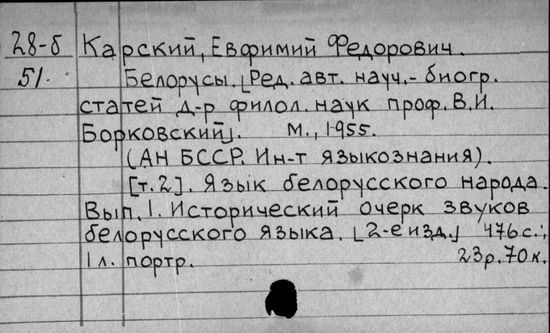 28-б Карский, Евфимий Федорович.
51. Белорусы. [Ред. авт. науч.-биогр.
статей д-р филол. наук проф. В.И.
Борковский]. М., 1955.
(АН БССР. Ин-т языкознания).
[т.2]. Язык белорусского народа.
Вып. 1. Исторический очерк звуков
белорусского языка. [2-е изд.] 476с.;
1 л. портр. 23р.70к.